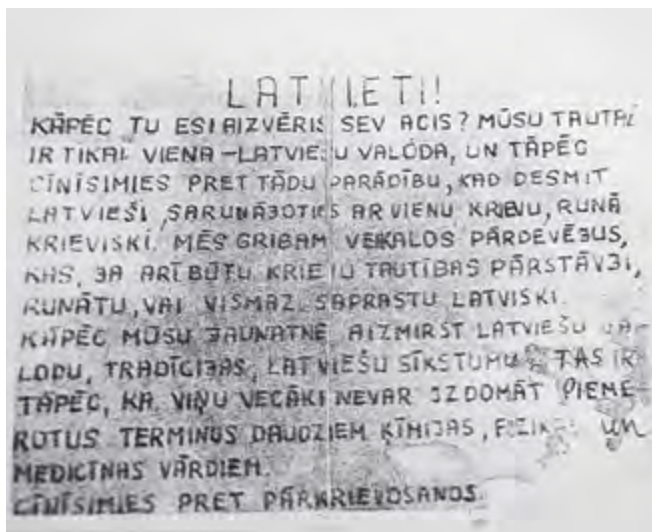 LATVIETI!
KĀPĒC TU ESI AIZVĒRIS SEV ACIS? MŪSU TAUTAI
IR TIKAI VIENA – LATVIEŠU VALODA, UN TĀPĒC
CĪNĪSIMIES PRET TĀDU PARĀDĪBU, KAD DESMIT
LATVIEŠI, SARUNĀJOTIES AR VIENU KRIEVU, RUNĀ
KRIEVISKI. MĒS GRIBAM VEIKALOS PĀRDEVĒJUS,
KAS, JA ARĪ BŪTU KRIEVU TAUTĪBAS PĀRSTĀVJI,
RUNĀTU, VAI VISMAZ SAPRASTU LATVISKI.
KĀPĒC MŪSU JAUNATNE AIZMIRST LATVIEŠU VA-
LODU, TRADĪCIJAS, LATVIEŠU SĪKSTUMU? TAS IR
TĀPĒC, KA VIŅU VECĀKI NEVAR IZDOMĀT PIEMĒ-
ROTUS TERMINUS DAUDZIEM ĶĪMIJAS, FIZIKAS un
MEDICĪNAS VĀRDIEM.
CĪNĪSIMIES PRET PĀRKRIEVOŠANOS.